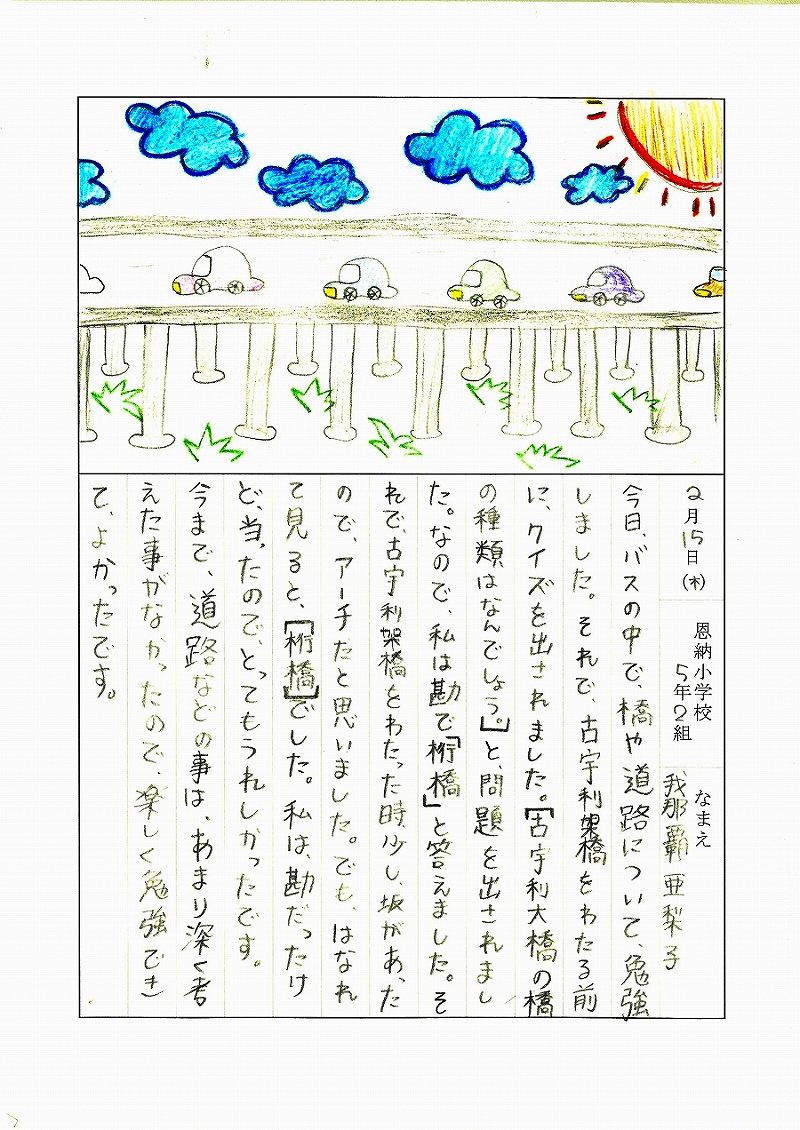 2月15日(木)
恩納小学校
5年2組
なまえ
我那覇亜梨子
今日、バスの中で、橋や道路について、勉強
しました。それで、古宇利架橋をわたる前
に、クイズを出されました。「古宇利大橋の橋
の種類はなんでしょう。」と、問題を出されまし
た。なので、私は勘で「桁橋」と答えました。そ
れで、古宇利架橋をわたった時、少し、坂があった
ので、アーチだと思いました。でも、はなれ
て見ると、「桁橋」でした。私は、勘だったけ
ど、当ったので、とってもうれしかったです。
今まで、道路などの事は、あまり深く考
えた事がなかったので、楽しく勉強でき
て、よかったです。